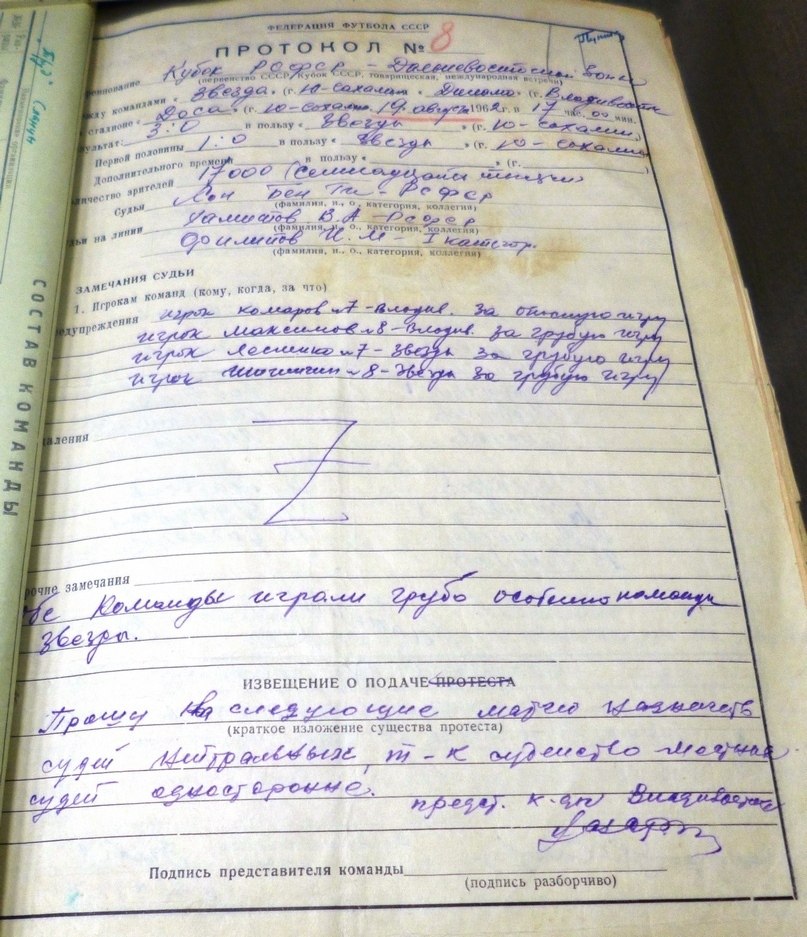 ФЕДЕРАЦИЯ ФУТБОЛА СССР
ПРОТОКОЛ № 8
енование Кубок РСФСР – Дальневосточной Зоны
(первенство СССР, Кубок СССР, товарищеская, международная встреча)
жду командами « Звезда » (г. Ю-Сахалин « Динамо » (г. Владивосток
стадионе « Доса » (г. Ю-Сахалин 19 август 1962 г. в 17 час. 00 мин.
зультат: 3:0 в пользу « Звезды » (г. Ю-Сахалин)
Первой половины 1:0 в пользу « Звезды » (г. Ю-Сахалин)
Дополнительного времени в пользу « » (г. )
личество зрителей 17000 (семнадцати тысячи)
Судья РСФСР
(фамилия, и., о., категория, коллегия)
дьи на линии В.А – РСФСР
(фамилия, и., о., категория, коллегия)
Филипов И.М – I категор.
(фамилия, и., о., категория, коллегия)
ЗАМЕЧАНИЯ СУДЬИ
1. Игрокам команд (кому, когда, за что)
едупреждения игрок Комаров №7 – Владив. за опасную игру
игрок Максимов №8 – Владив. за грубую игру
игрок №7 – Звезды за грубую игру
игрок №8 – Звезды за грубую игру
аления
рочие замечания
бе Команды играли грубо особенно команда
Звезды.
ИЗВЕЩЕНИЕ О ПОДАЧЕ ПРОТЕСТА
Прошу на следующие матчи назначать
(краткое изложение существа протеста)
судей нейтральных, т-к судейство местных
судей односторонне.
предст. к-ды Владивосток
Подпись представителя команды
(подпись разборчиво)
СОСТАВ КОМАНДЫ